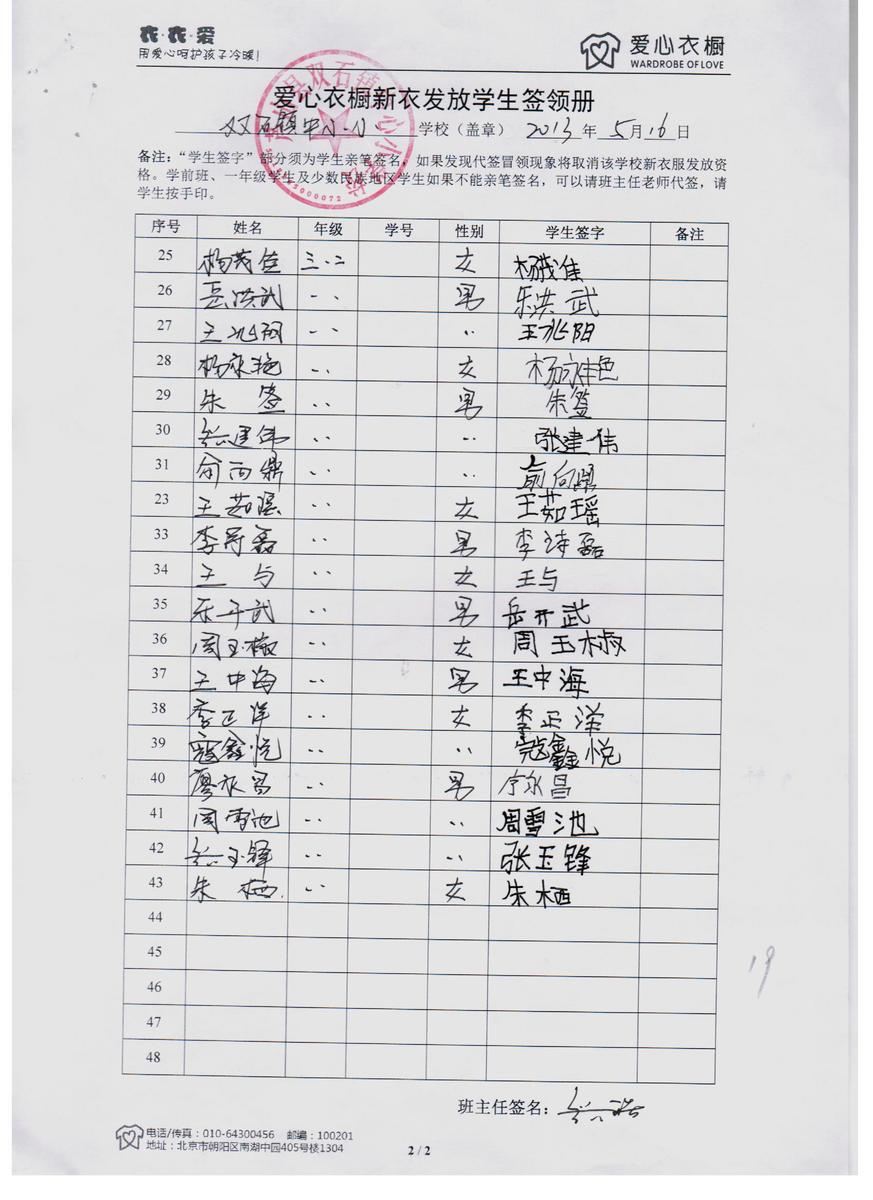 衣·衣·爱
用爱心呵护孩子冷暖!
爱心衣橱
WARDROBE OF LOVE
爱心衣橱新衣发放学生签领册
双石镇中心小 学校（盖章） 2013 年 5 月 16 日
备注：“学生签字”部分须为学生亲笔签名，如果发现代签冒领现象将取消该学校新衣服发放资
格。学前班、一年级学生及少数民族地区学生如果不能亲笔签名，可以请班主任老师代签，请
学生按手印。
序号 姓名 年级 学号 性别 学生签字 备注
25 杨茂佳 三.二 女 杨茂佳
26 岳洪武 、、 男 乐洪武
27 王兆阳 、、 、、 王兆阳
28 杨永艳 、、 女 杨永艳
29 朱签 、、 男 朱签
30 张建伟 、、 、、 张建伟
31 俞向鼎 、、 、、 俞向鼎
23 王茹瑶 、、 女 王茹瑶
33 李诗磊 、、 男 李诗磊
34 王与 、、 女 王与
35 乐开武 、、 男 岳开武
36 周玉椒 、、 女 周玉椒
37 王中海 、、 男 王中海
38 李正洋 、、 女 李正洋
39 寇鑫悦 、、 、、 寇鑫悦
40 廖永昌 、、 男 永昌
41 周雪池 、、 、、 周雪池
42 张玉锋 、、 、、 张玉锋
43 朱栖 、、 女 朱栖
44
45
46
47
48
19
班主任签名：张
电话/传真：010-64300456 邮编：100201
地址：北京市朝阳区南湖中园405号楼1304
2 / 2